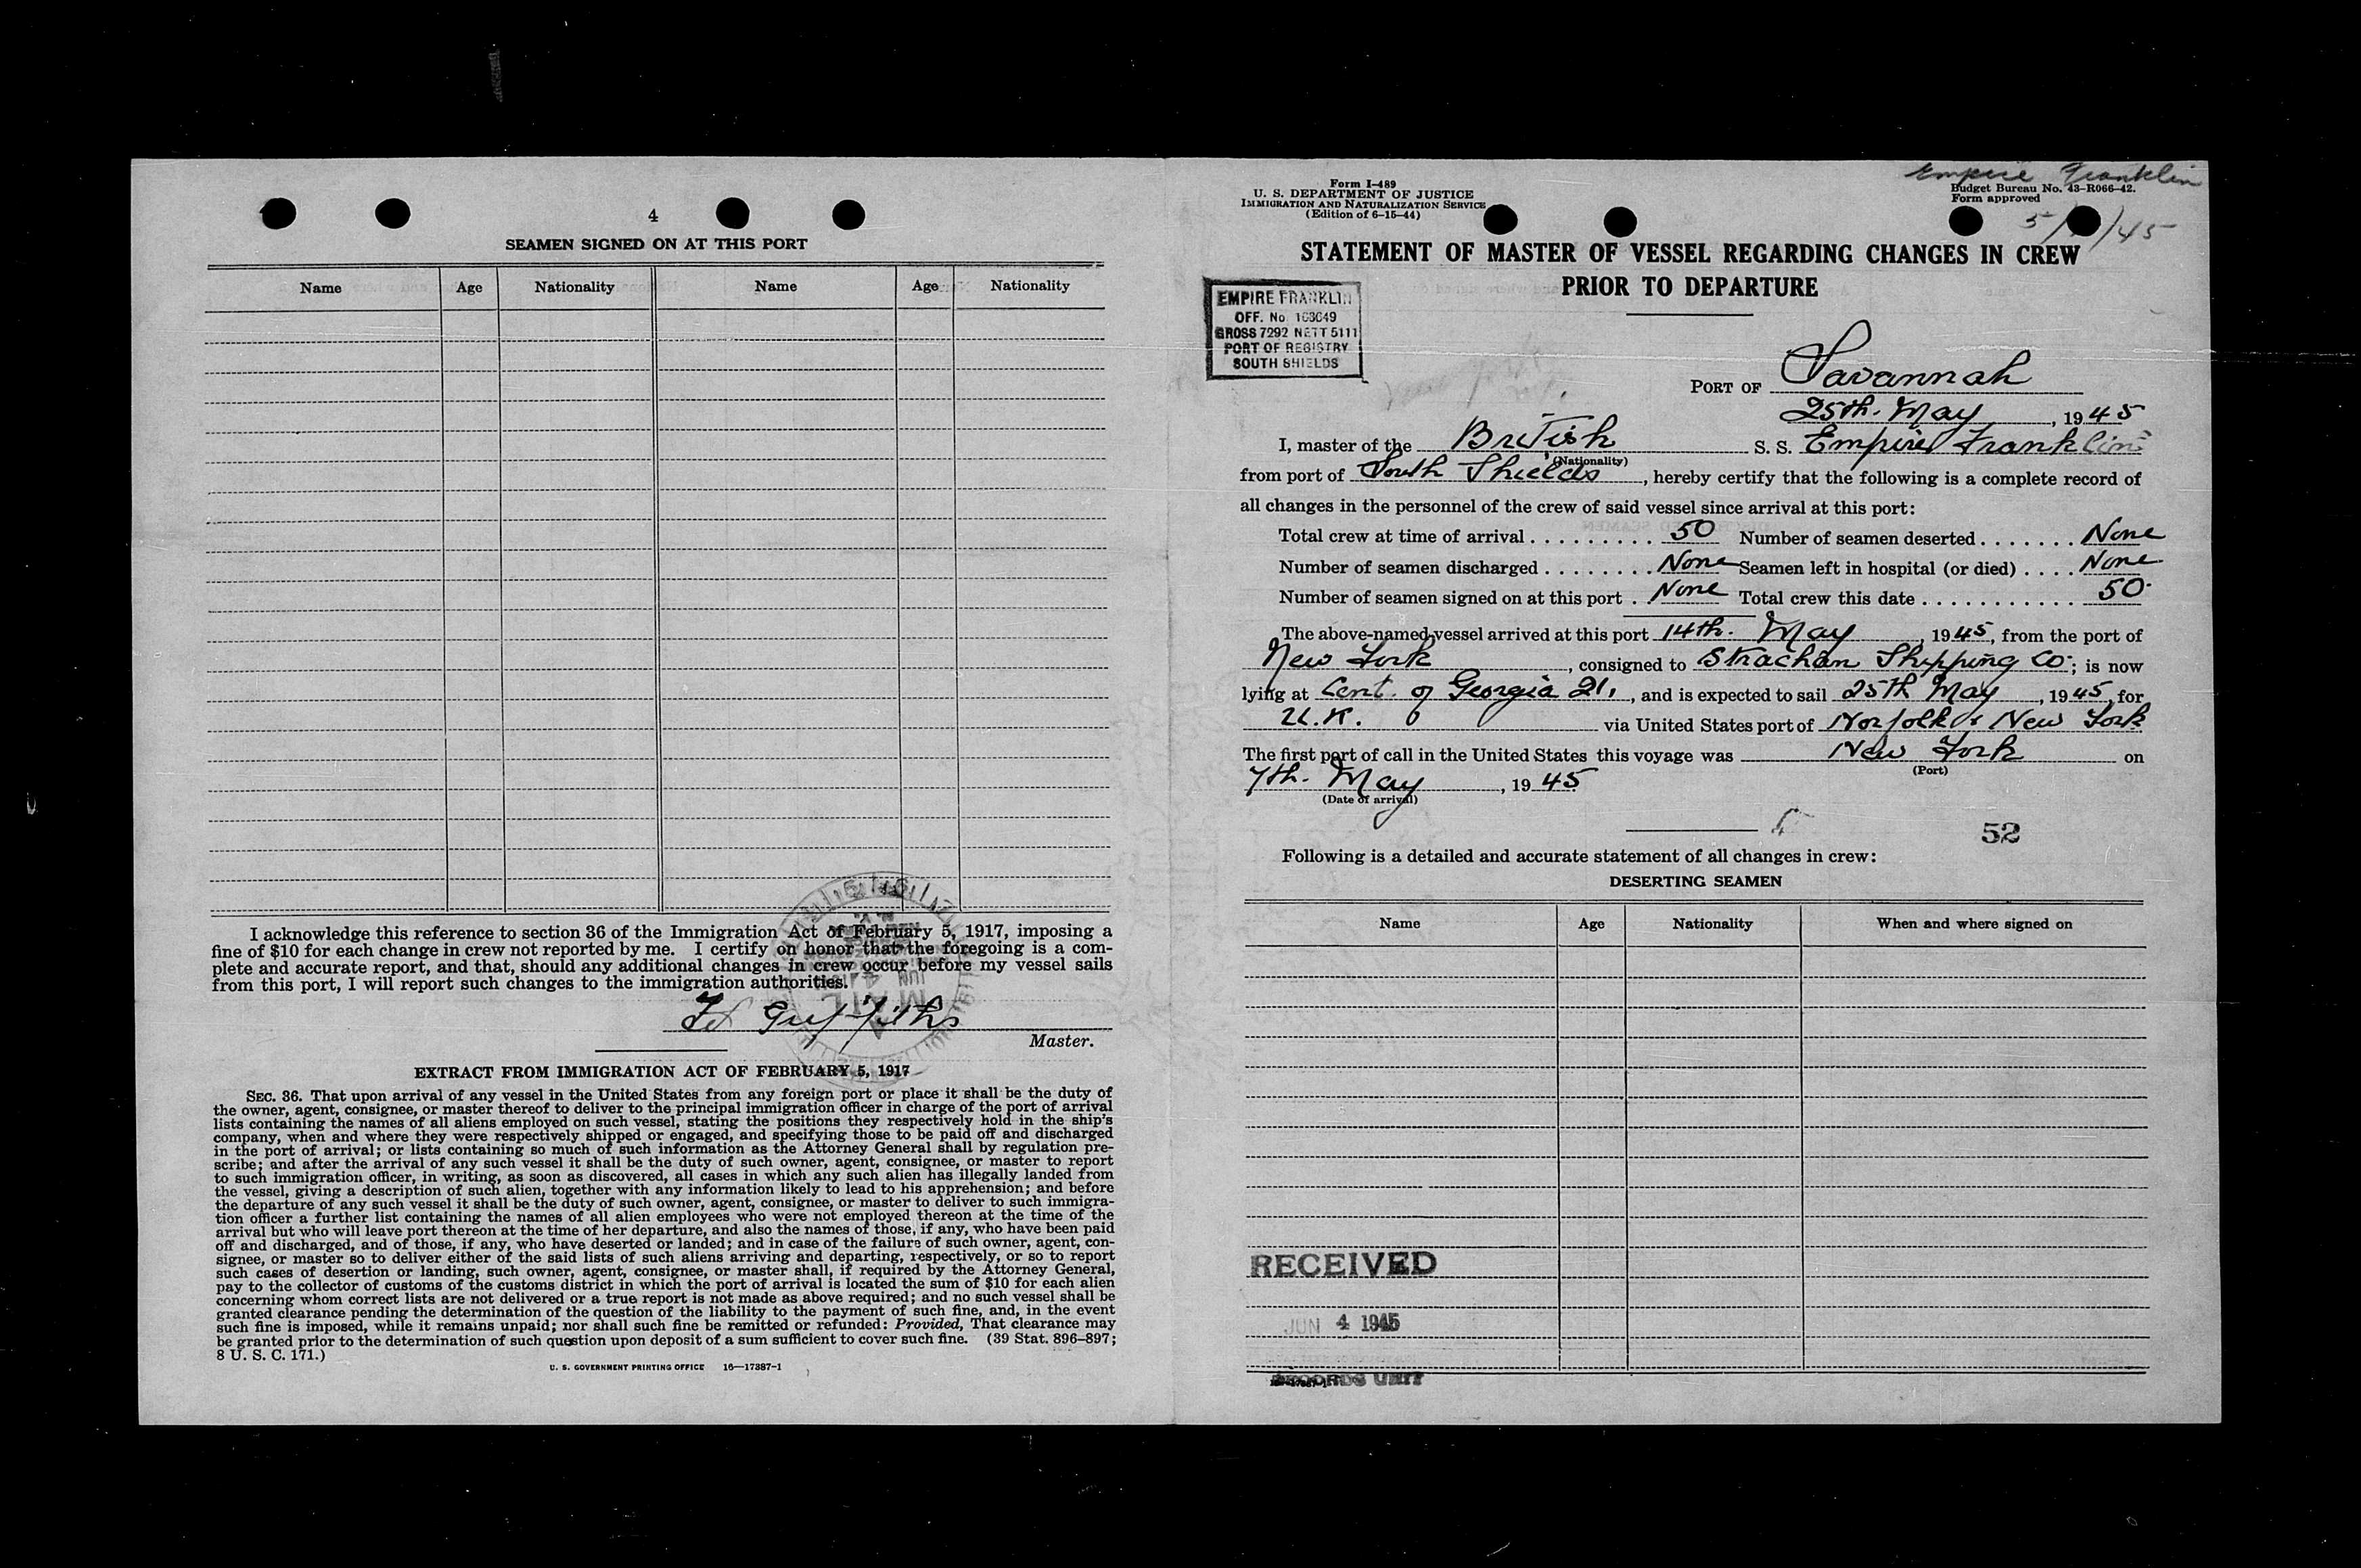 4
SEAMEN SIGNED ON AT THIS PORT
Name Age Nationality Name Age Nationality
I acknowledge this reference to section 36 of the Immigration Act of February 5, 1917, imposing a
fine of $10 for each change in crew not reported by me. I certify on honor that the foregoing is a com-
plete and accurate report, and that, should any additional changes in crew occur before my vessel sails
from this port, I will report such changes to the immigration authorities.
Griffiths
Master.
EXTRACT FROM IMMIGRATION ACT OF FEBRUARY 5, 1917
SEC. 36. That upon arrival of any vessel in the United States from any foreign port or place it shall be the duty of
the owner, agent, consignee, or master thereof to deliver to the principal immigration officer in charge of the port of arrival
lists containing the names of all aliens employed on such vessel, stating the positions they respectively hold in the ship's
company, when and where they were respectively shipped or engaged, and specifying those to be paid off and discharged
in the port of arrival; or lists containing so much of such information as the Attorney General shall by regulation pre-
scribe; and after the arrival of any such vessel it shall be the duty of such owner, agent, consignee, or master to report
to such immigration officer, in writing, as soon as discovered, all cases in which any such alien has illegally landed from
the vessel, giving a description of such alien, together with any information likely to lead to his apprehension; and before
the departure of any such vessel it shall be the duty of such owner, agent, consignee, or master to deliver to such immigra-
tion officer a further list containing the names of all alien employees who were not employed thereon at the time of the
arrival but who will leave port thereon at the time of her departure, and also the names of those, if any, who have been paid
off and discharged, and of those, if any, who have deserted or landed; and in case of the failure of such owner, agent, con-
signee, or master so to deliver either of the said lists of such aliens arriving and departing, respectively, or so to report
such cases of desertion or landing, such owner, agent, consignee, or master shall, if required by the Attorney General,
pay to the collector of customs of the customs district in which the port of arrival is located the sum of $10 for each alien
concerning whom correct lists are not delivered or a true report is not made as above required; and no such vessel shall be
granted clearance pending the determination of the question of the liability to the payment of such fine, and, in the event
such fine is imposed, while it remains unpaid; nor shall such fine be remitted or refunded: Provided, That clearance may
be granted prior to the determination of such question upon deposit of a sum sufficient to cover such fine. (39 Stat. 896–897;
8 U. S. C. 171.)
U. S. GOVERNMENT PRINTING OFFICE 16—17387-1
Empire Franklin
Form I-489
U. S. DEPARTMENT OF JUSTICE
IMMIGRATION AND NATURALIZATION SERVICE
(Edition of 6-15-44)
Budget Bureau No. 43-R066-42.
Form approved
STATEMENT OF MASTER OF VESSEL REGARDING CHANGES IN CREW
PRIOR TO DEPARTURE
EMPIRE FRANKLIN
OFF. No. 163049
GROSS 7292 NETT 5111
PORT OF REGISTRY
SOUTH SHIELDS
PORT OF Savannah
25th. May, 1945
I, master of the British S. S. Empire Franklin
(Nationality)
from port of South Shields, hereby certify that the following is a complete record of
all changes in the personnel of the crew of said vessel since arrival at this port:
Total crew at time of arrival . . . . . . . . . 50 Number of seamen deserted . . . . . . . None
Number of seamen discharged . . . . . . . . None Seamen left in hospital (or died) . . . . None
Number of seamen signed on at this port . None Total crew this date . . . . . . . . . . . . 50
The above-named vessel arrived at this port 14th. May, 1945, from the port of
New York, consigned to Strachan Shipping Co.; is now
lying at Cent. of Georgia 21, and is expected to sail 25th May, 1945, for
U.K. via United States port of Norfolk & New York
The first port of call in the United States this voyage was New York on
(Port)
7th. May, 1945
(Date of arrival)
52
Following is a detailed and accurate statement of all changes in crew:
DESERTING SEAMEN
Name Age Nationality When and where signed on
RECEIVED
JUN 4 1945
RECORDS UNIT